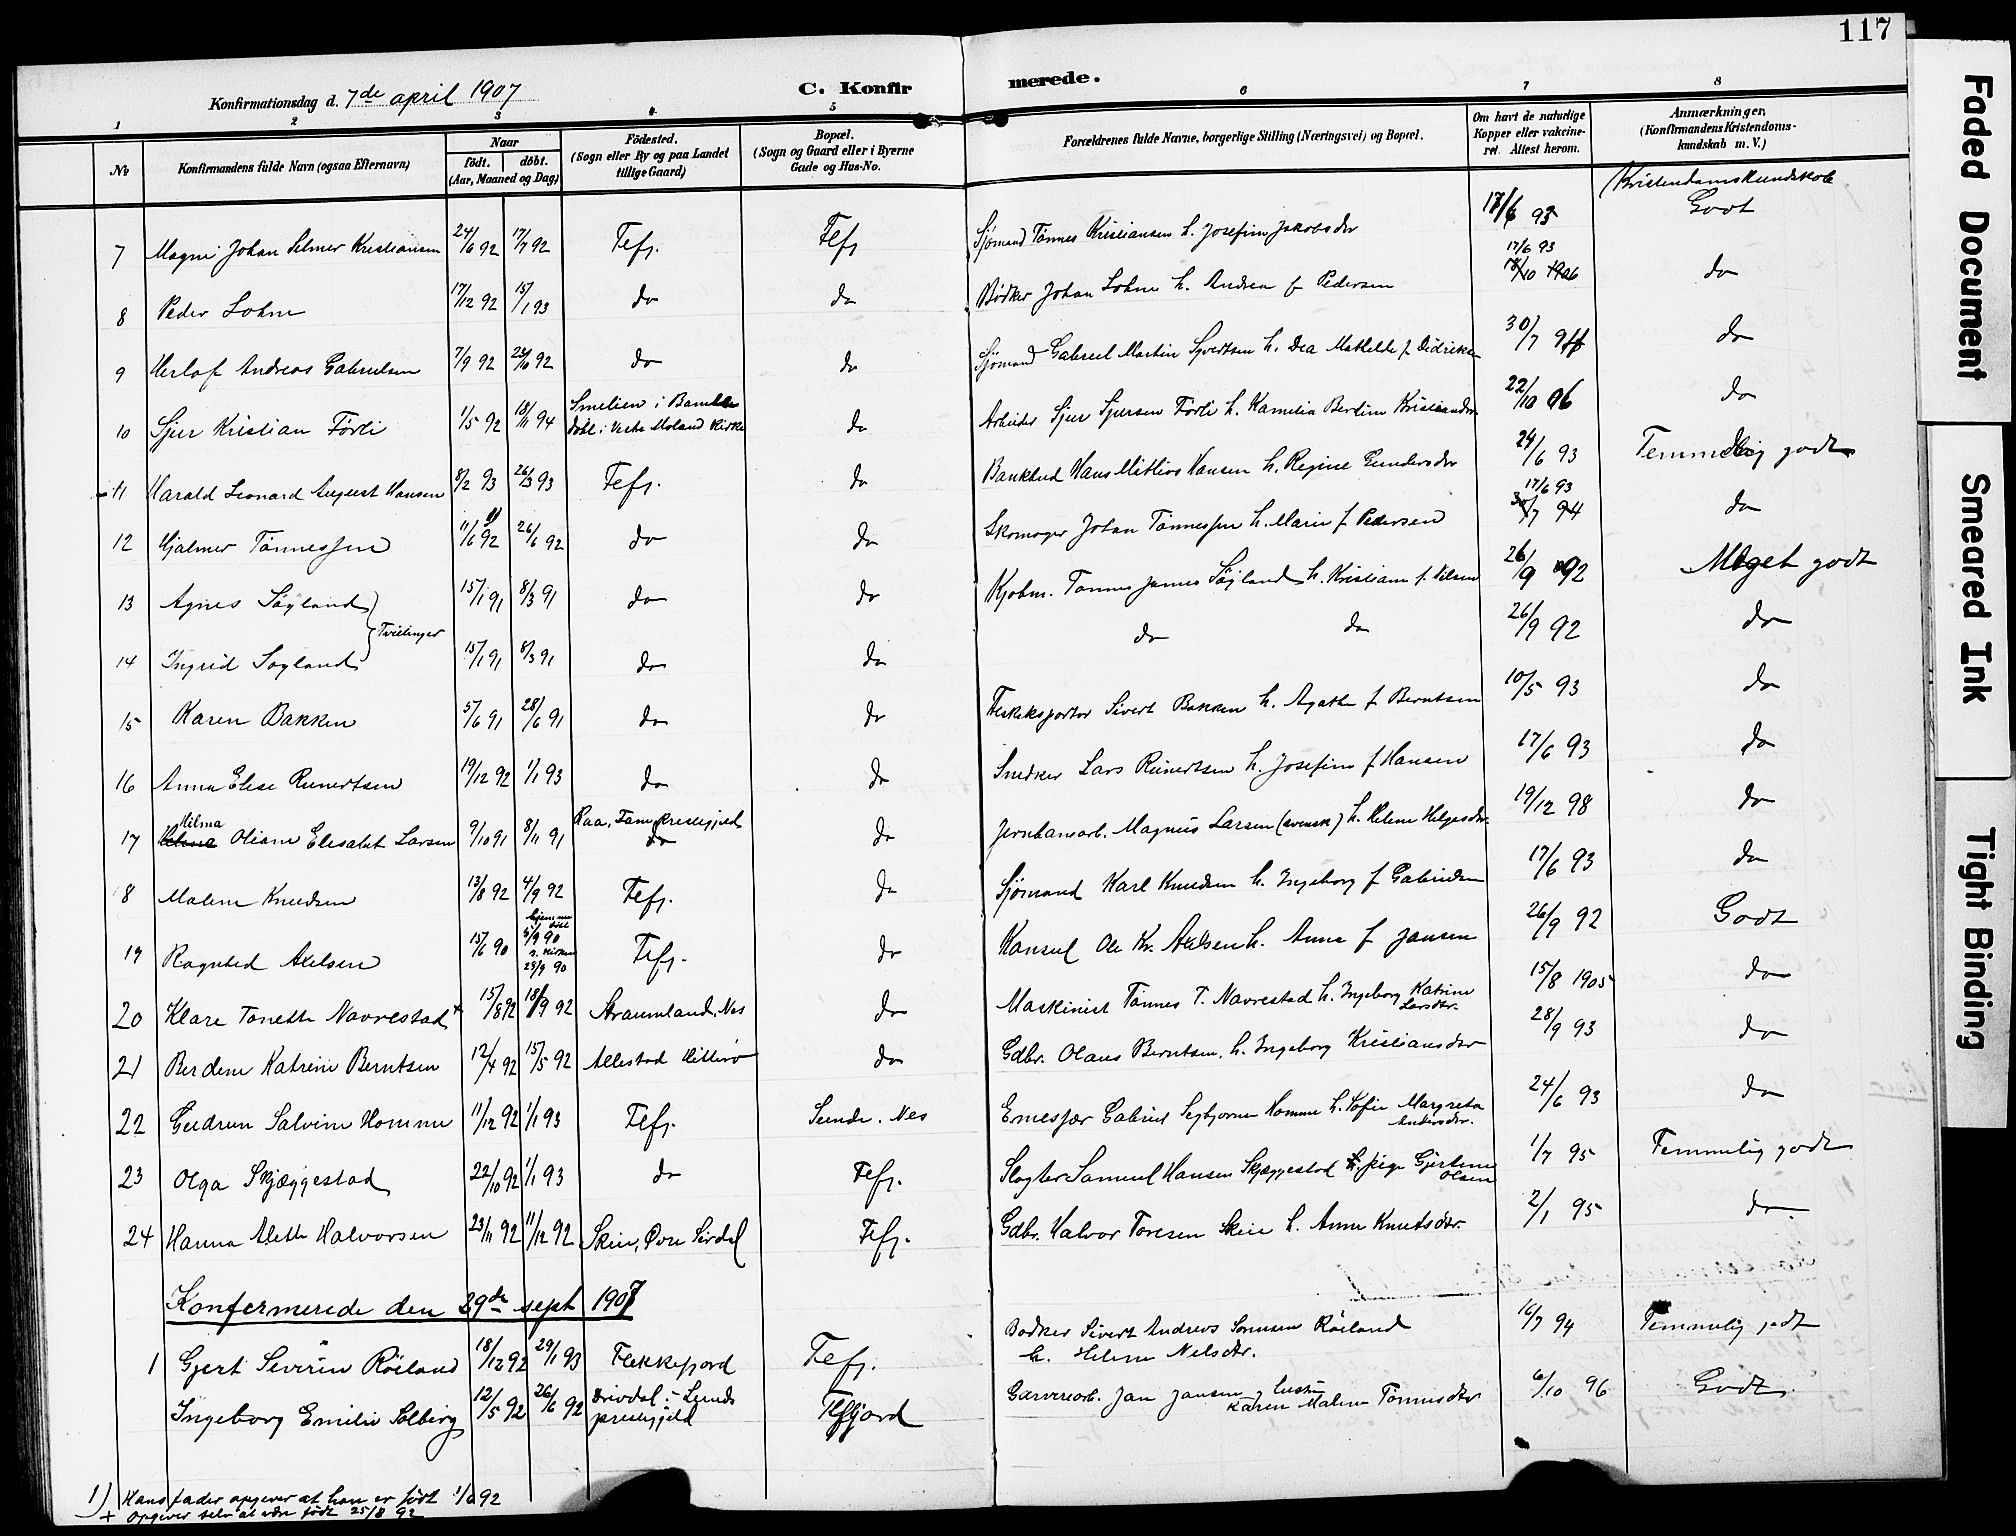 117
Konfirmationsdag d. 7de april 1907
C. Konfirmerede.
1 2 3 4 5 6 7 8
No
Konfirmandens fulde Navn (ogsaa Efternavn)
Naar
født. døbt.
(Aar, Maaned og Dag)
Fødested.
(Sogn eller By og paa Landet
tillige Gaard)
Bopæl.
(Sogn og Gaard eller i Byerne
Gade og Hus-No.
Forældrenes fulde Navne, borgerlige Stilling (Næringsvei) og Bopæl.
Om havt de naturlige
Kopper eller vakcine-
ret. Attest herom.
Anmærkninger,
(Konfirmandens Kristendoms-
kundskab m. V.)
Kristendomskundskab
7 Magni Johan Selmer Kristiansen 24/6 92 17/7 92 Fefj. Flfj Sjømand Tønnes Kristiansen h. Josefine Jakobsdtr 17/6 93 Godt
8 Peder Lohne 17/12 92 15/1 93 do do Bødker Johan Lohne h. Andrea f Pedersen 17/6 93 18/10 1906 do
9 Herlof Andreas Gabrielsen 7/9 92 23/10 92 do do Sjømand Gabriel Martin Syvertsen h. Dea Mathilde f. Didriksen 30/7 94 do
10 Sjur Kristian Førli 1/5 92 18/11 94 Smelien i Bamble døbt i Vestre Moland Kirke do Arbeider Sjur Sjursen Førli h. Kamilia Bertine Kristiansdtr. 22/10 06 do
11 Harald Leonard August Hansen 8/2 93 26/3 93 Fefj. do Bankbud Hans Mathias Hansen h. Regine Gundersdtr 24/6 93 Temmelig godt
12 Hjalmer Tønnessen 11/6 92 1) 26/6 92 do do Skomager Johan Tønnessen h. Marie f Pedersen 17/6 93 30/7 94 do
13 Agnes Søyland 15/1 91 8/3 91 do do Kjøbm. Tønnes James Søyland h. Kristiane f. Nilsen 26/9 92 Meget godt
Tvillinger
14 Ingrid Søyland 15/1 91 8/3 91 do do do do 26/9 92 do
15 Karen Bakken 5/6 91 28/6 91 do do Fiskeksportør Sivert Bakken h. Agathe f Berntsen 10/5 93 do
16 Anna Elise Reinertsen 19/12 92 1/1 93 do do Snedker Lars Reinertsen h. Josefine f Hansen 17/6 93 do
17 Hilma Oliane Elisabet Larsen 9/10 91 8/11 91 Raa, Fane Prestegjeld do do Jernbanearb. Magnus Larsen (svensk) h. Helene Helgesdtr. 19/12 98 do
18 Malene Knudsen 13/8 92 4/9 92 Fefj. do Sjømand Karl Knudsen h. Ingeborg f Gabrielsen 17/6 93 do
19 Ragnhild Axelsen 15/6 90 hjemmedøbt 5/9 90 i Kirken 28/9 90 Fefj. do Konsul Ole Kr. Axelsen h. Anna f Jansen 26/9 92 Godt
20 Klare Tonette Navrestad + 15/8 92 18/9 92 Straumland, Nes do Maskinist Tønnes T. Navrestad h. Ingeborg Katrine Larsdtr. 15/8 1905 do
21 Berdine Katrine Berntsen 12/4 92 15/5 92 Allestad Hitterø do Gdbr. Olaus Berntsen, h. Ingeborg Kristiansdtr 28/9 93 do
22 Gudrun Salvine Homme 11/12 92 1/1 93 Fefj. Sunde. Nes Emesfær Gabriel Segbjørnsen Homme h. Sofie Margreta Andersdtr. 24/6 93 do
23 Olga Skjæggestad 22/10 92 1/1 93 do Fefj. Slagter Samuel Hansen Skjæggestad & pige Gjertine Olsen 1/7 95 Temmelig godt
24 Hanna Alette Halvorsen 23/11 92 11/12 92 Skeie, Øvre Sirdal Fefj. Gdbr. Halvor Toresen Skeie h. Anne Knutsdtr. 2/1 95 do
Konfermerede den 29de sept 1907
1 Gjert Severin Røiland 18/12 92 29/1 93 Flekkefjord Fefj. Bødker Sivert Andreas Sørensen Røiland h. Helene Nelsdtr. 16/7 94 Temmelig godt
Ingeborg Emilie Solberg 12/5 92 26/6 92 Drivdal i Lunds prestegjeld Flfjord Garveriarb. Jan Jansen, hustru Karen Malene Tønnesdtr 6/10 96 Godt.
1) Hans fader opgiver at han er født 1/6 92
+ Opgiver selv at være født 25/8 92
Faded Document
Smeared Ink
Tight Binding